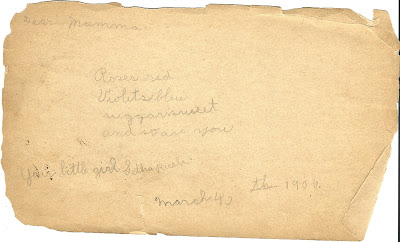 Dear Mamma.
Roses red
Violets blue
suggar sweet
and so are you
Your little girl
March 4, 1906.